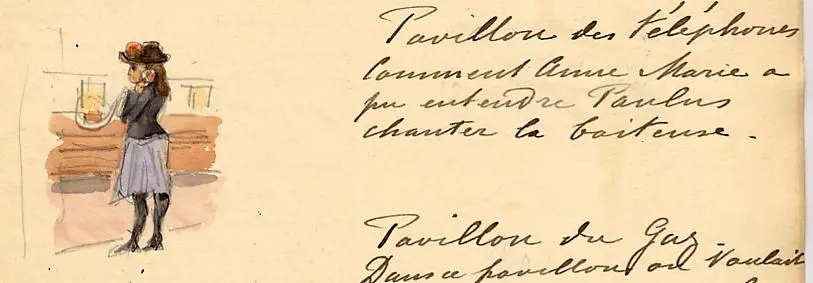 Pavillon des téléphones
Comment Anne Marie a
pu entendre Paulus
chanter la boiteuse.
Pavillon du Gaz.
Dans ce pavillon, on voulait